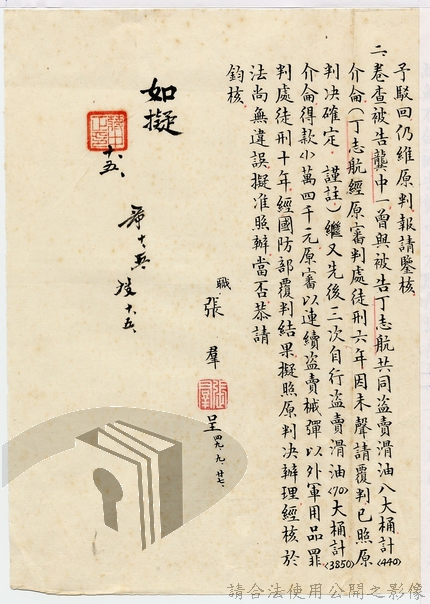 予駁回仍維原判報請鑒核
二、卷查被告龔中一曾與被告丁志航共同盜賣滑油八大桶計(440)
介侖(丁志航經原審判處徒刑六年因未聲請覆判已照原
判決確定。謹註)繼又先後三次自行盜賣滑油(70)大桶計(3850)
介侖得款小萬四千元原審以連續盜賣械彈以外軍用品罪
判處徒刑十年經國防部覆判結果擬照原判決辦理經核於
法尚無違誤擬准照辦當否恭請
鈞核
職 張羣 張羣 呈 四九、九、廿七、
如擬
蔣中正印
十、五、
請合法使用公開之影像